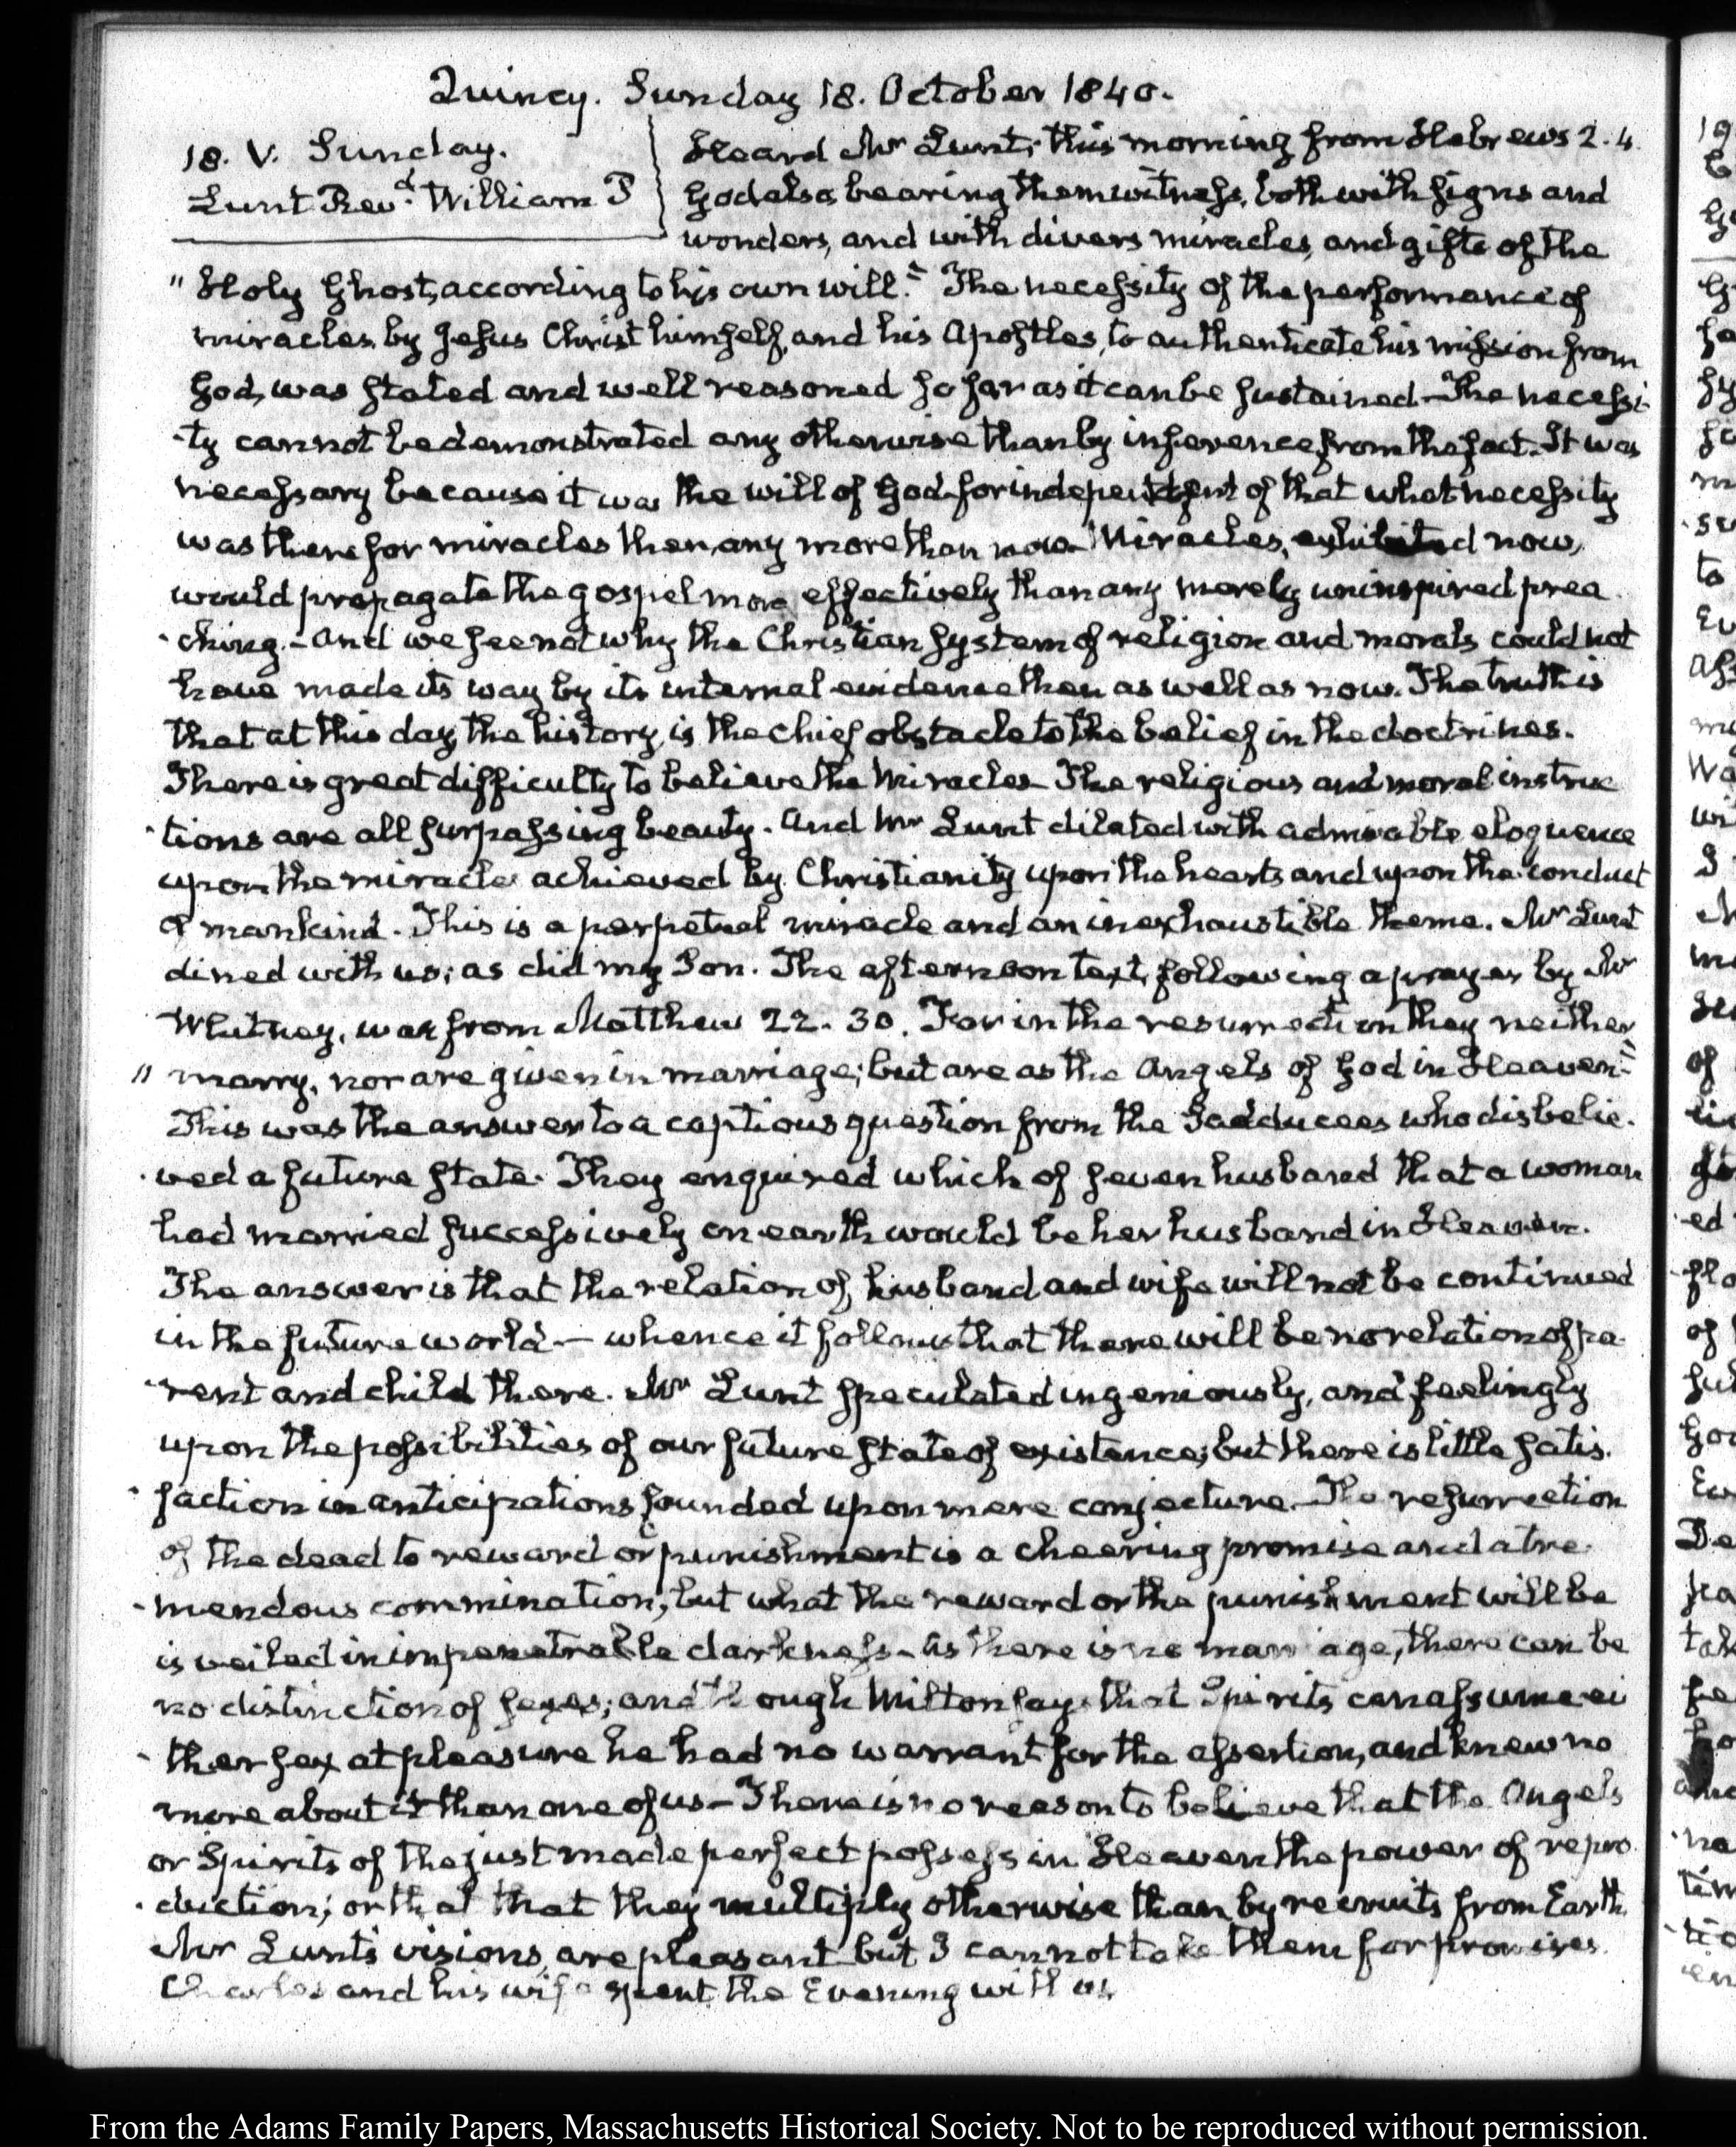 Quincy. Sunday 18. October 1840.
18. V. Sunday.
Lunt Revd. William P
Heard Mr Lunt, this morning from Hebrews 2. 4.
God also bearing them witness, both with signs and
wonders, and with divers miracles, and gifts of the
" Holy Ghost, according to his own will." The necessity of the performance of
miracles by Jesus Christ himself, and his Apostles, to authenticate his mission from
God, was stated and well reasoned so far as it can be sustained - The necessi-
-ty cannot be demonstrated any otherwise than by inference from the fact. It was
necessary because it was the will of God - for independent of that what necessity
was there for miracles then, any more than now - Miracles, exhibited now,
would propagate the gospel more effectively than any merely uninspired prea
-ching. - And we see not why the Christian system of religion and morals could not
have made its way by its internal evidence then as well as now. The truth is
that at this day, the history, is the chief obstacle to the belief in the doctrines.
There is great difficulty to believe the Miracles - The religious and moral instruc
-tions are all surpassing beauty. And Mr Lunt dilated with admirable eloquence
upon the miracle achieved by Christianity upon the hearts and upon the conduct
of mankind. This is a perpetual miracle and an inexhaustible theme. Mr Lunt
dined with us; as did my Son. The afternoon text, following a prayer by Mr
Whitney, was from Matthew 22. 30. For in the resurrection they neither
" marry, nor are given in marriage; but are as the Angels of God in Heaven"
This was the answer to a captious question from the Sadducees who disbelie-
-ved a future state. They enquired which of seven husband that a woman
had married successively on earth would be her husband in Heaven.
The answer is that the relation of husband and wife will not be continued
in the future world - whence it follows that there will be no relation of pa-
-rent and child there. Mr Lunt speculated ingeniously, and feelingly
upon the possibilities of our future state of existence; but there is little satis-
-faction in anticipations founded upon mere conjecture. The resurrection
of the dead to reward or punishment is a cheering promise and a tre-
-mendous commination; but what the reward or the punishment will be
is veiled in impenetrable darkness - As there is no marriage, there can be
no distinction of sexes; and though Milton says that Spirits can assume ei
-ther sex at pleasure he had no warrant for the assertion, and knew no
more about it than one of us - There is no reason to believe that the Angels
or Spirits of the just made perfect possess in Heaven the power of repro
-duction; or that that they multiply otherwise than by recruits from Earth.
Mr Lunt's visions, are pleasant but I cannot take them for promises.
Charles and his wife spent the Evening with us.
From the Adams Family Papers, Massachusetts Historical Society. Not to be reproduced without permission.